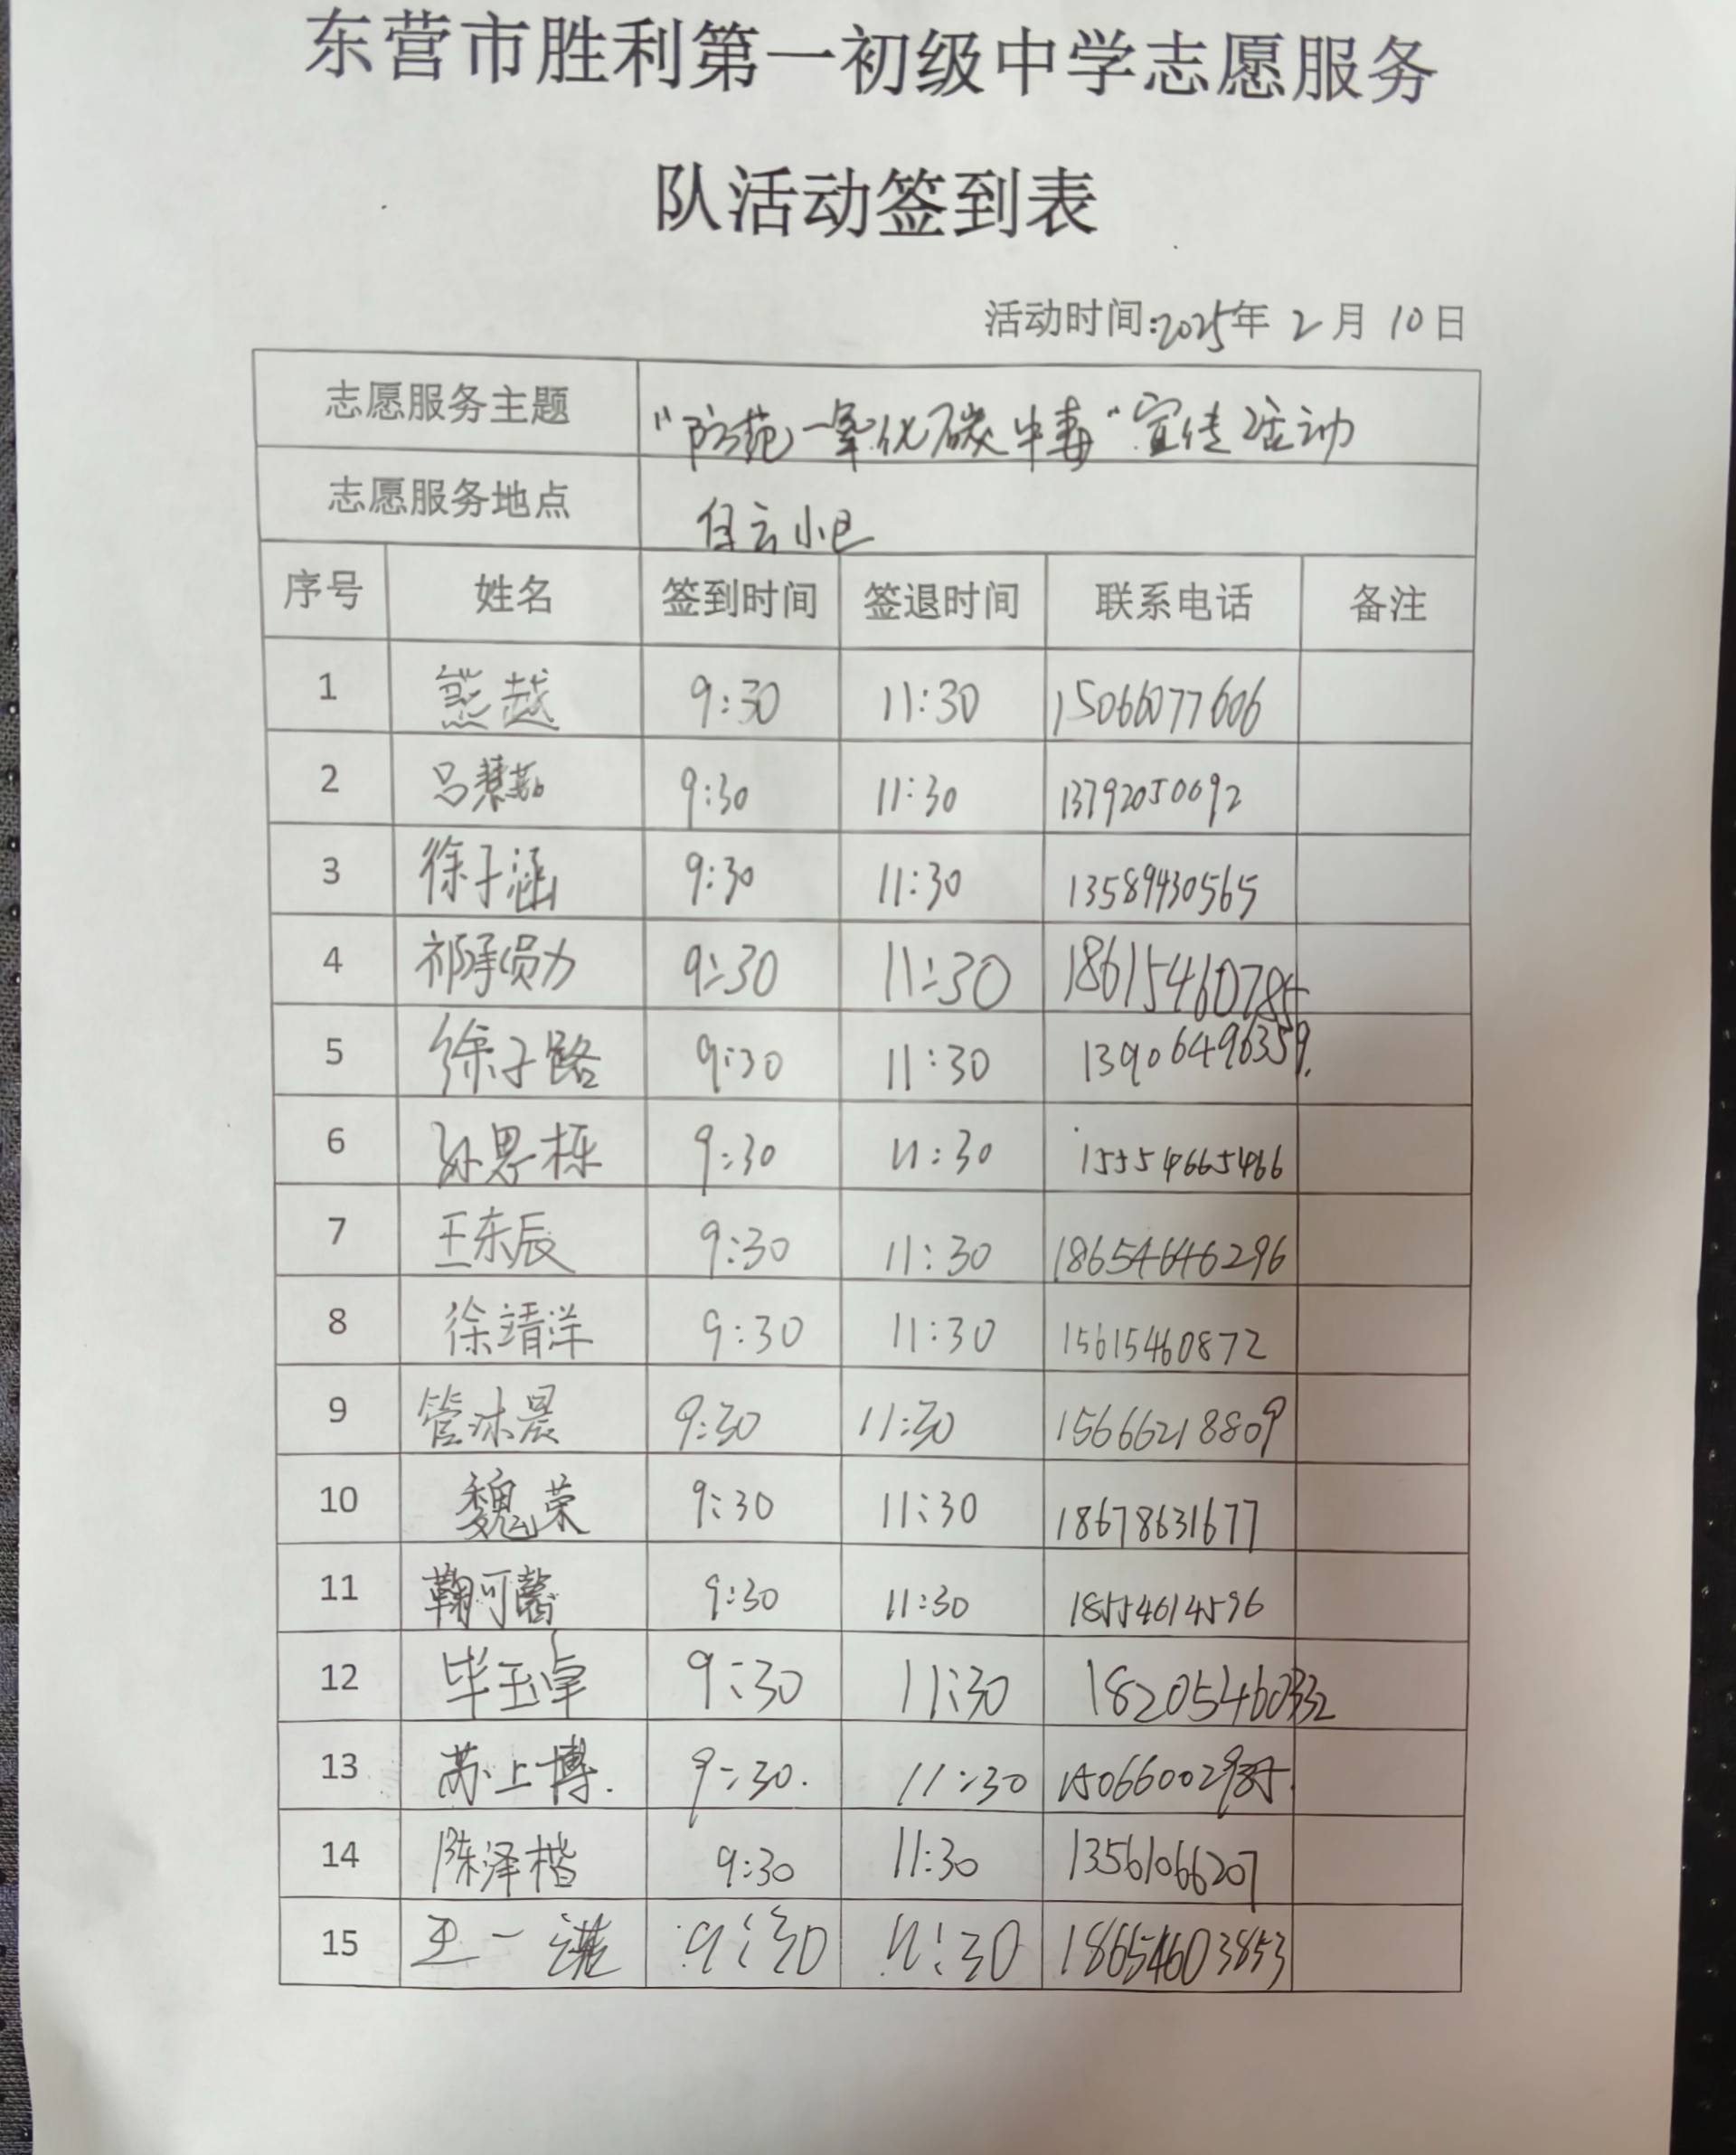 东营市胜利第一初级中学志愿服务
队活动签到表
活动时间:2025年 2 月 10 日
志愿服务主题 "防范一氧化碳中毒"宣传活动
志愿服务地点 白云小区
序号 姓名 签到时间 签退时间 联系电话 备注
1 熊越 9:30 11:30 15066077606
2 吕慧茹 9:30 11:30 13792050092
3 徐子涵 9:30 11:30 13589430565
4 祁承勋 9:30 11:30 18615460785
5 徐子路 9:30 11:30 13906496359.
6 孙思栎 9:30 11:30 15554665466
7 王东辰 9:30 11:30 18654646296
8 徐靖洋 9:30 11:30 15615460872
9 管沐晨 9:30 11:30 15666218809
10 魏荣 9:30 11:30 18678631677
11 鞠可馨 9:30 11:30 18554614596
12 毕玉卓 9:30 11:30 18205460332
13 苏上博. 9:30. 11:30
14 陈泽楷 9:30 11:30 13561066207
15 王一诺 9:30 11:30 18654603853